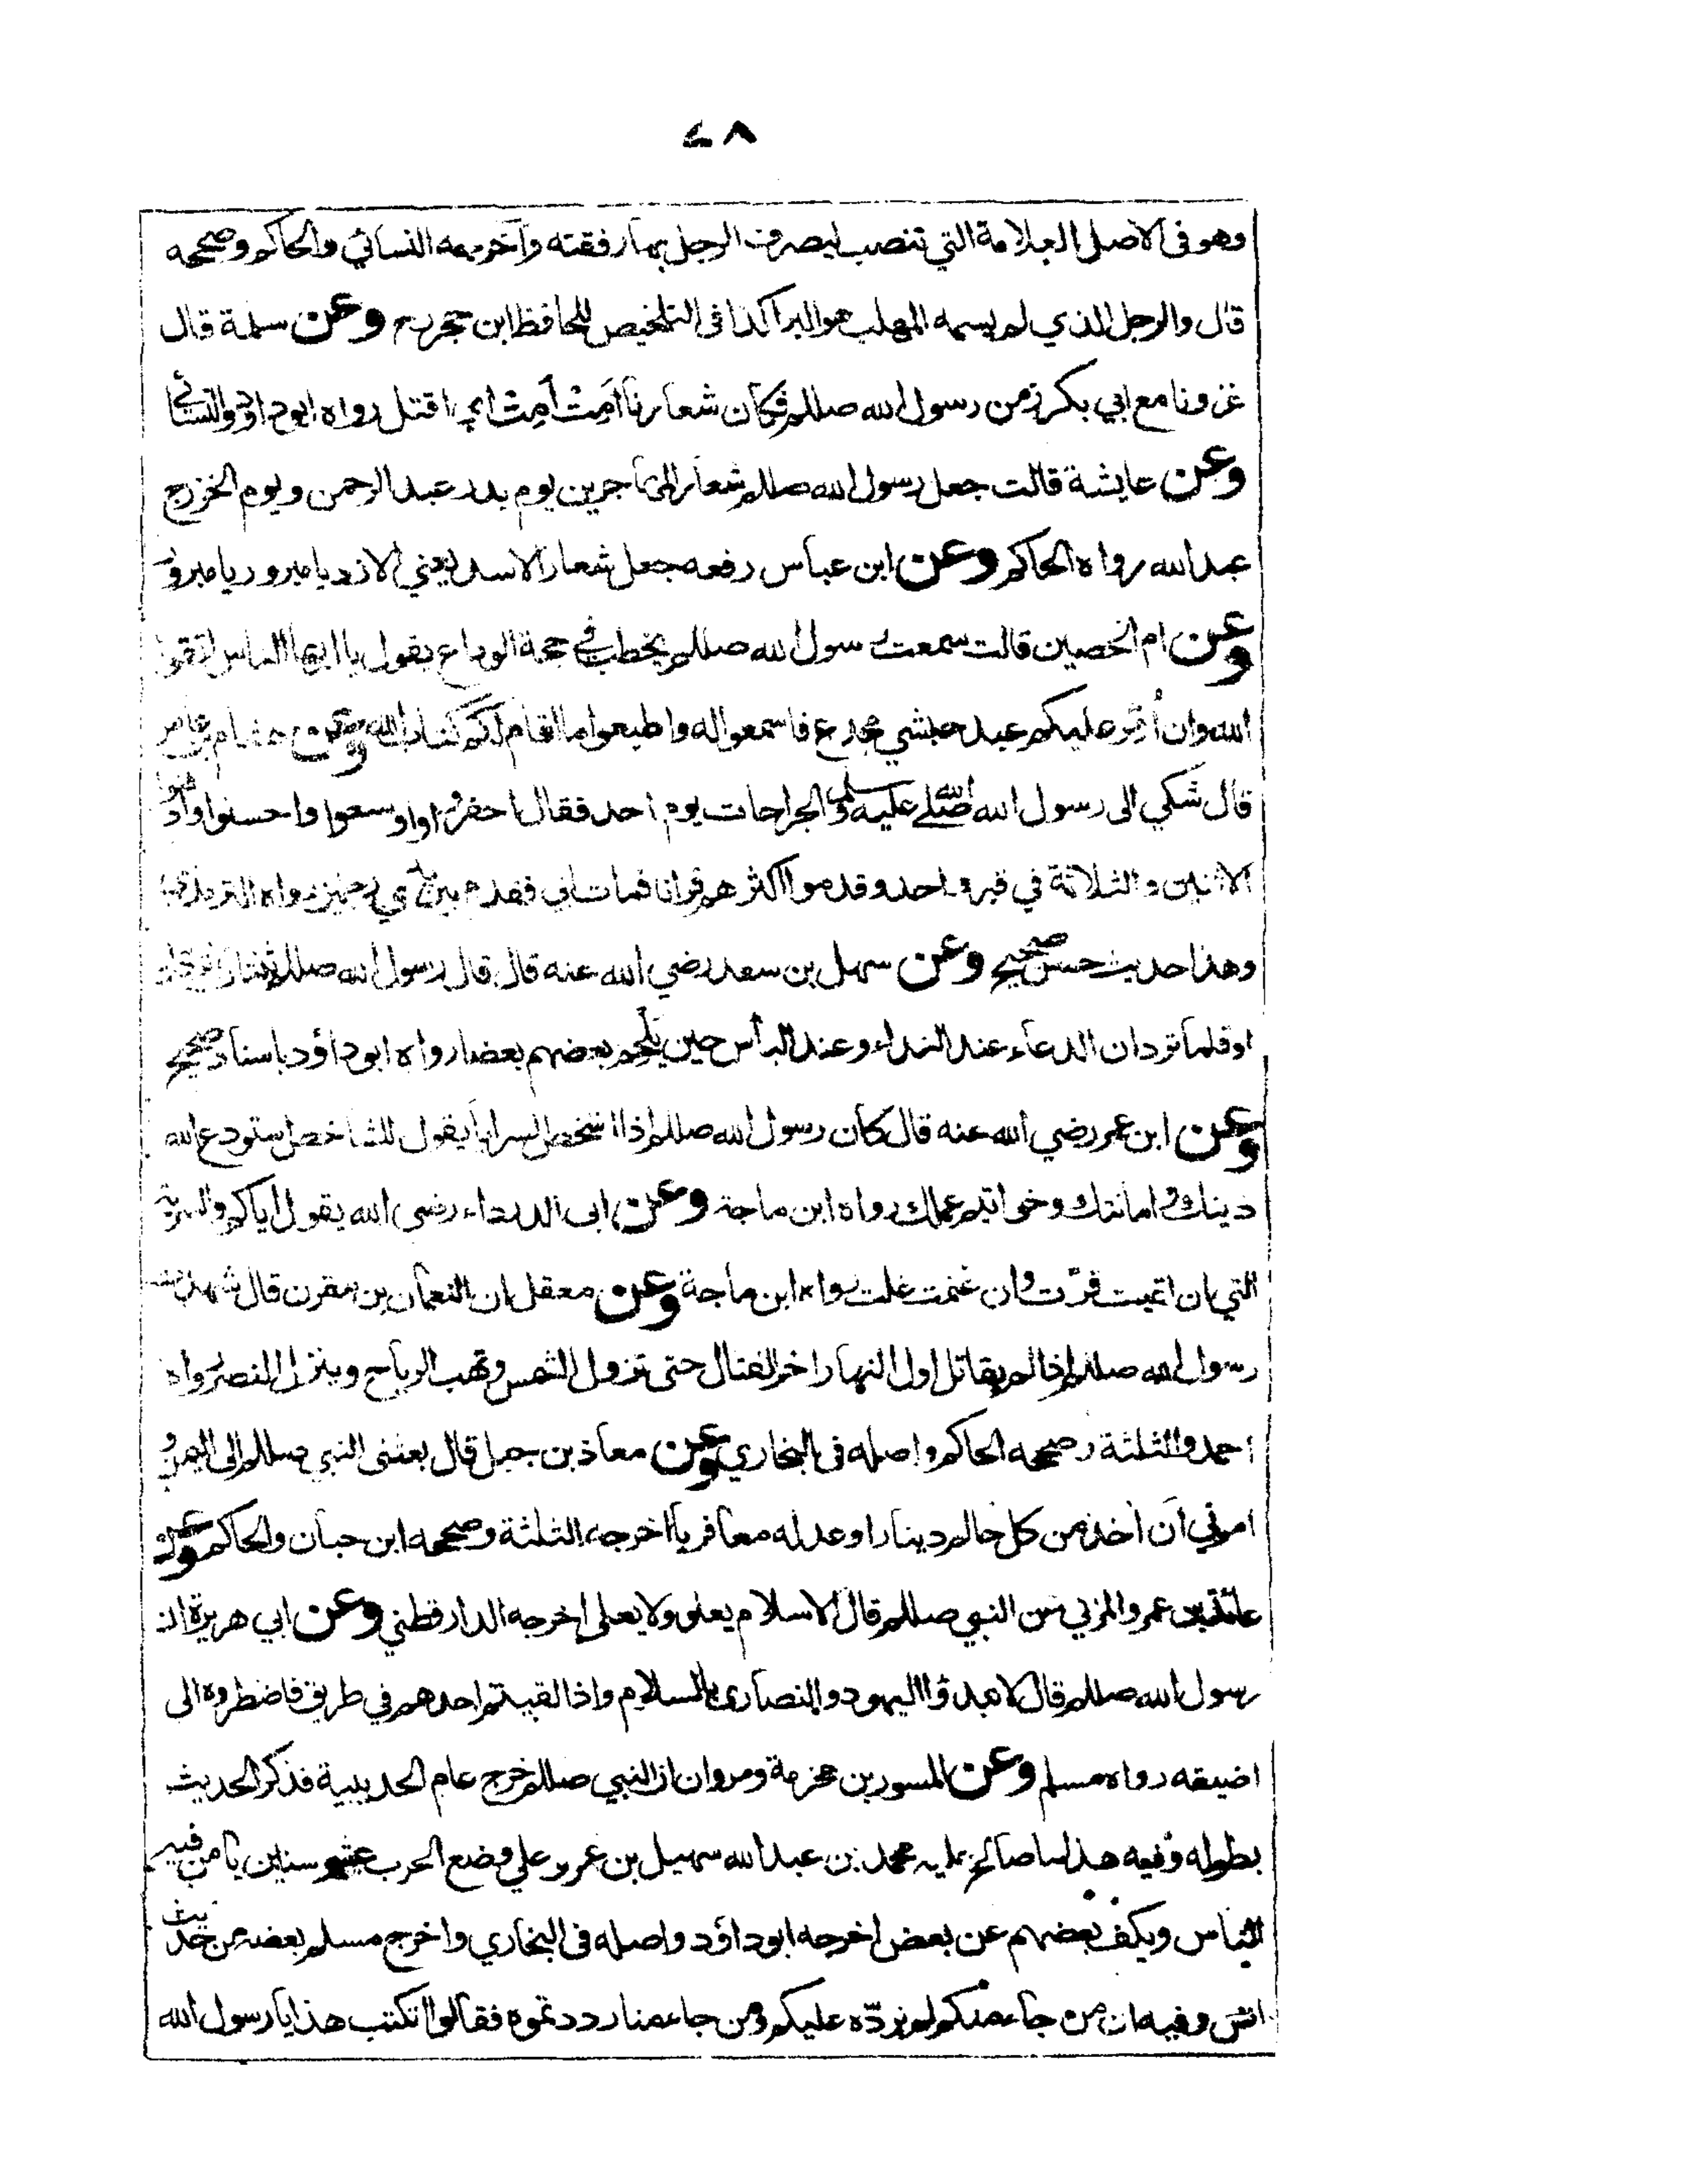 ٤٨
وهو فى الاصل العلامة التي تنصب ليصرف الرجل بها رفقته واخرجه النسائي والحاكم وصححه
قال والرجل الذي لم يسمه المهلب هو البرا كذا فى التلخيص للحافظ ابن حجر رح وعن سلمة قال
غزونا مع ابي بكر زمن رسول الله صللم فكان شعارنا اَمِتْ اَمِتْ اى اقتل رواه ابوداؤد والنسائى
وعن عايشة قالت جعل رسول الله صللم شعار المهاجرين يوم بدر عبد الرحمن ويوم الخزرج
عبد الله رواه الحاكم وعن ابن عباس رفعه جعل شعار الاسد يعني الازد يا مبرور يا مبرور
وعن ام الحصين قالت سمعت رسول الله صللم يخطب في حجة الوداع يقول يا ايها الناس اتقوا
الله وان اُمِّر عليكم عبد حبشي مجدع فاسمعوا له واطيعوا ما اقام لكم كتاب الله وعن هشام بن عامر
قال شكي الى رسول الله صلى الله عليه وسلم الجراحات يوم احد فقال احفروا واوسعوا واحسنوا وادفنوا
الاثنين والثلاثة في قبر واحد وقدموا اكثرهم قرانا فمات ابي فقدم بين يدي رجلين رواه الترمذي
وهذا حديث حسن صحيح وعن سهل بن سعد رضي الله عنه قال قال رسول الله صللم ثنتان لا تردان
او قلما تردان الدعاء عند النداء وعند البأس حين يلحم بعضهم بعضا رواه ابوداؤد باسناد صحيح
وعن ابن عمر رضي الله عنه قال كان رسول الله صللم اذا اشخص السرايا يقول للشاخص استودع الله
دينك وامانتك وخواتيم عملك رواه ابن ماجة وعن ابى الدرداء رضى الله يقول اياكم والسرية
التي ان لقيت فرّت وان غنمت غلت رواه ابن ماجة وعن معقل ان النعمان بن مقرن قال شهدت
رسول الله صللم اذا لم يقاتل اول النهار اخر القتال حتى تزول الشمس وتهب الرياح وينزل النصر رواه
احمد والثلثة وصححه الحاكم واصله فى البخاري وعن معاذ بن جبل قال بعثنى النبي صللم الى اليمن و
امرني ان اخذ من كل حالم دينارا وعدله معافريا اخرجه الثلثة وصححه ابن حبان والحاكم وعن
عائذ بن عمرو المزني عن النبي صللم قال الاسلام يعلو ولا يعلى اخرجه الدارقطني وعن ابي هريرة ان
رسول الله صللم قال لا تبدؤا اليهود والنصارى بالسلام واذا لقيتم احدهم في طريق فاضطروه الى
اضيقه رواه مسلم وعن المسور بن مخرمة ومروان ان النبي صللم خرج عام الحديبية فذكر الحديث
بطوله وفيه هذا ما صالح عليه محمد بن عبد الله سهيل بن عمرو على وضع الحرب عشر سنين يأمن فيها
الناس ويكف بعضهم عن بعض اخرجه ابوداؤد واصله فى البخاري واخرج مسلم بعضه من حديث
انس وفيه ان من جاء منكم لم نردّه عليكم ومن جاء منا رددتموه فقالوا اتكتب هذا يا رسول الله